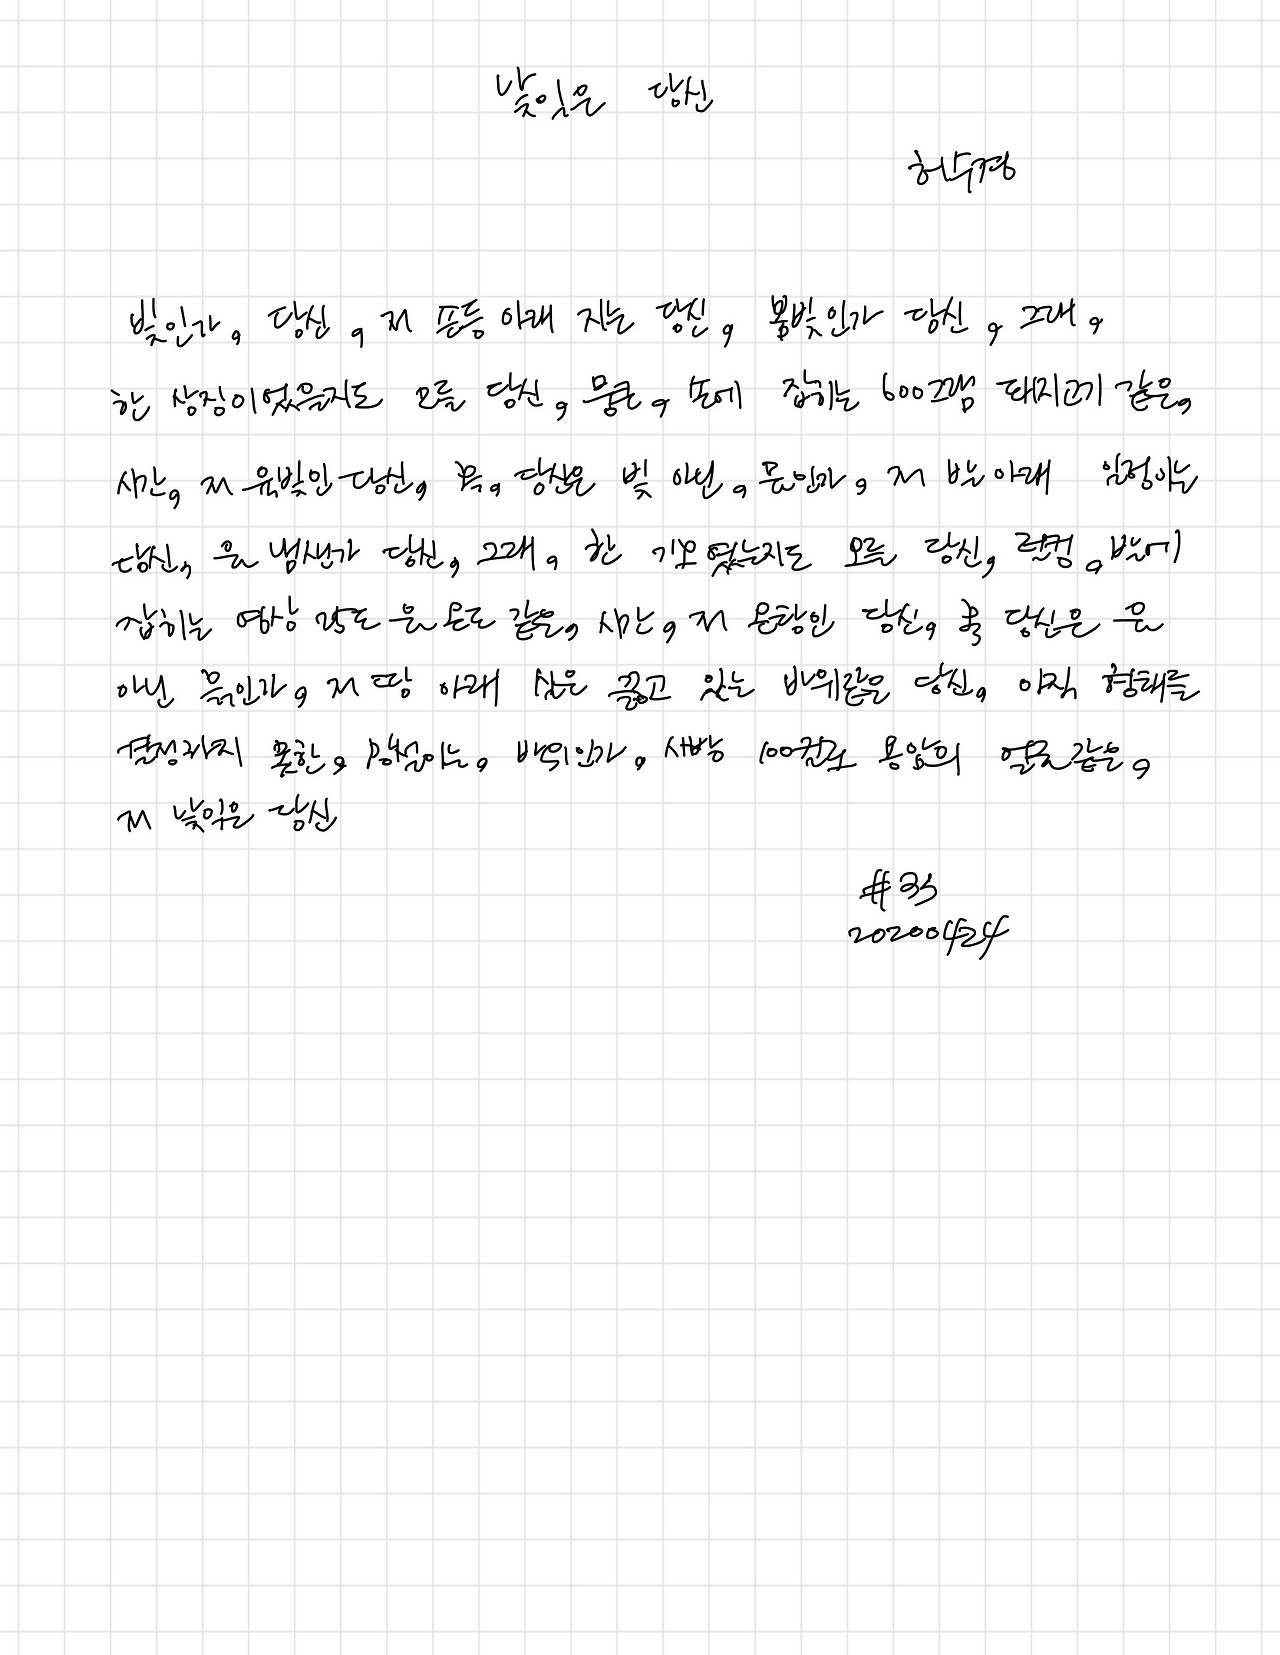 낯익은 당신
허수경
빛인가, 당신, 저 푼등 아래 지는 당신, 봄빛인가 당신, 그대,
한 상징이었을지도 모를 당신, 뭉큰, 손에 잡히는 600그램 돼지고기 같은,
시간, 저 육빛인 당신, 꼭, 당신은 빛 아닌, 물인가, 저 발 아래 일렁이는
당신, 물 냄샌가 당신, 그대, 한 기호였는지도 모를 당신, 물컹, 발에
잡히는 영상 25도 물 온도 같은, 시간, 저 온탕인 당신, 꼭 당신은 물
아닌 흙인가, 저 땅 아래 실은 끓고 있는 바위같은 당신, 아직 형태를
결정하지 못한, 망설이는, 바위인가, 사방 100킬로 용암의 얼굴 같은,
저 낯익은 당신
#35
20200424